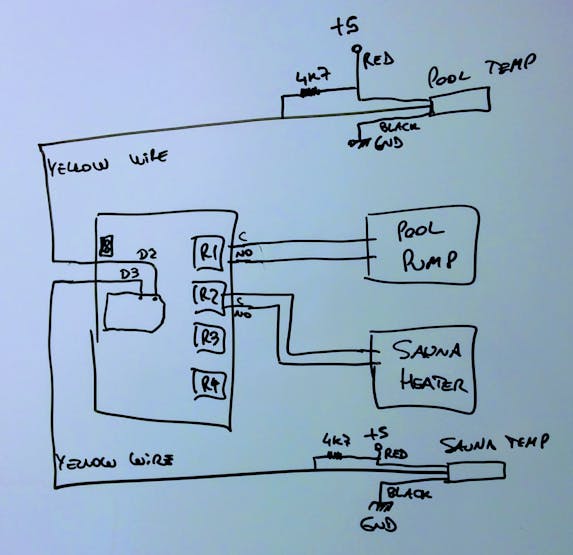 +5
RED
4K7
POOL TEMP
BLACK
GND
YELLOW WIRE
D2
D3
R1
C
NO
POOL
PUMP
R2
C
NO
R3
R4
SAUNA
HEATER
4K7
+5
RED
SAUNA TEMP
YELLOW WIRE
BLACK
GND